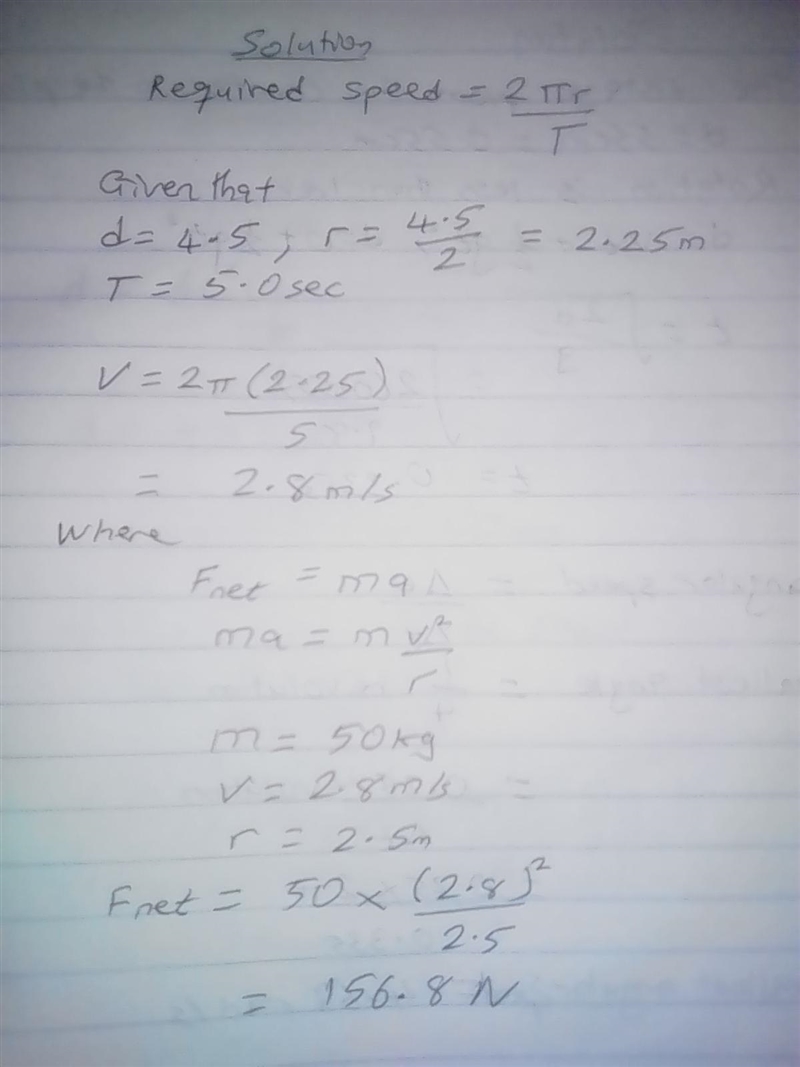 Solution
Required speed = 2πr/T
Given that
d = 4.5 , r = 4.5/2 = 2.25m
T = 5.0sec
V = 2π(2.25)/5
= 2.8m/s
Where
Fnet = ma
ma = m v²/r
m = 50kg
v = 2.8m/s =
r = 2.5m
Fnet = 50 × (2.8)²/2.5
= 156.8 N